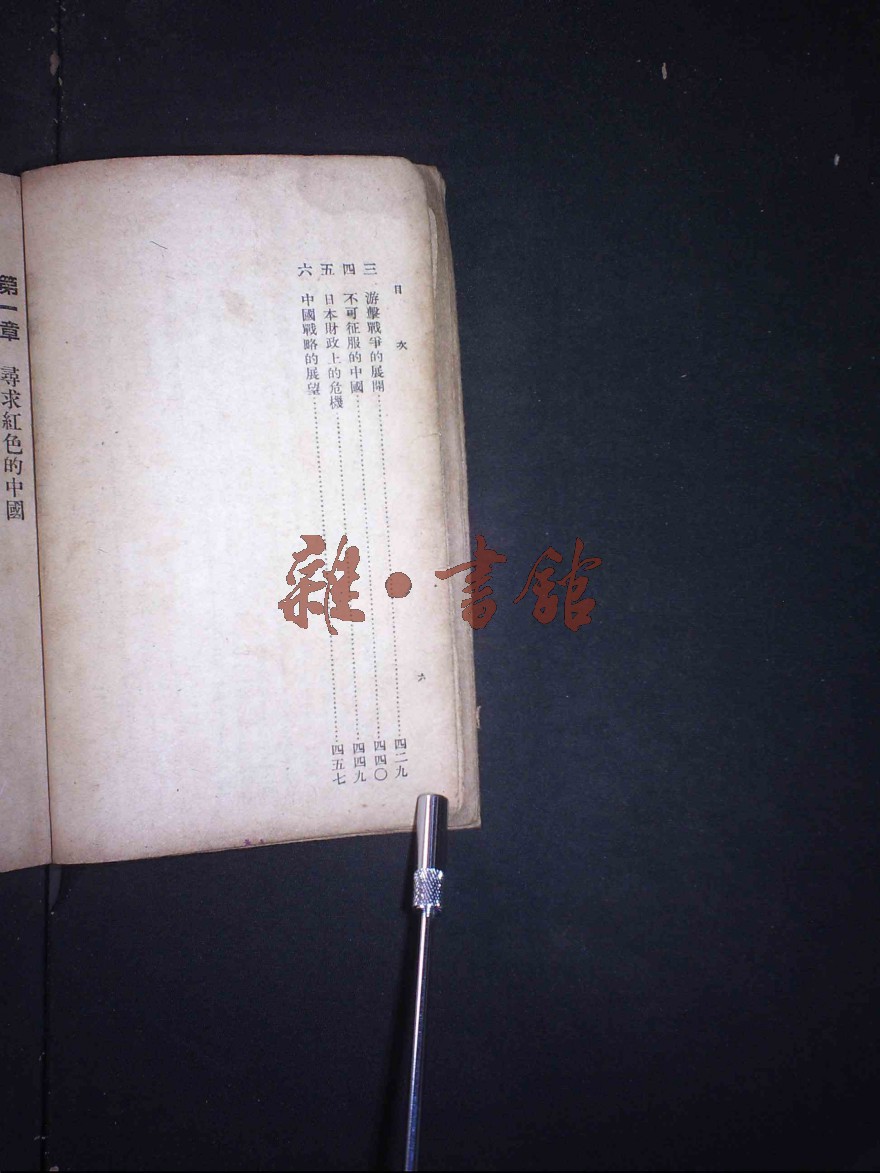 目次
六
三 游擊戰爭的展開…………四二九
四 不可征服的中國…………四四〇
五 日本財政上的危機…………四四九
六 中國戰略的展望…………四五七
第一章 尋求紅色的中國
雜·書館